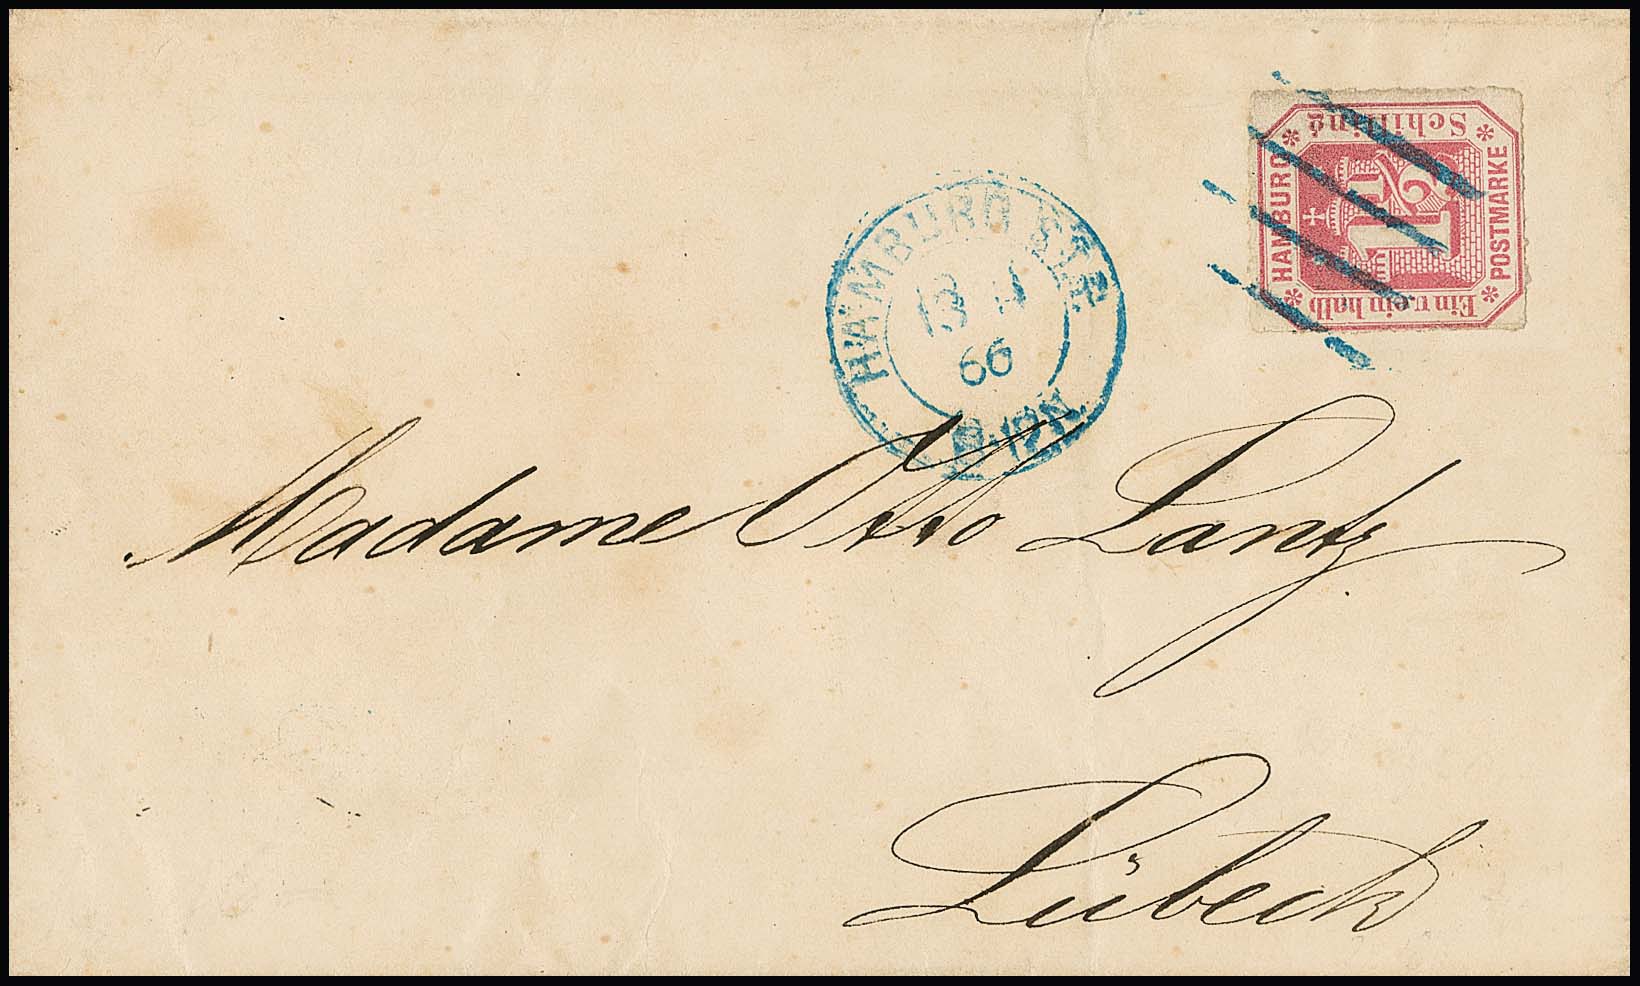 Schilling
HAMBURG
POSTMARKE
1½
Ein u. ein halb
HAMBURG ST.P.
66
Madame Otto Lantz.
Lübeck